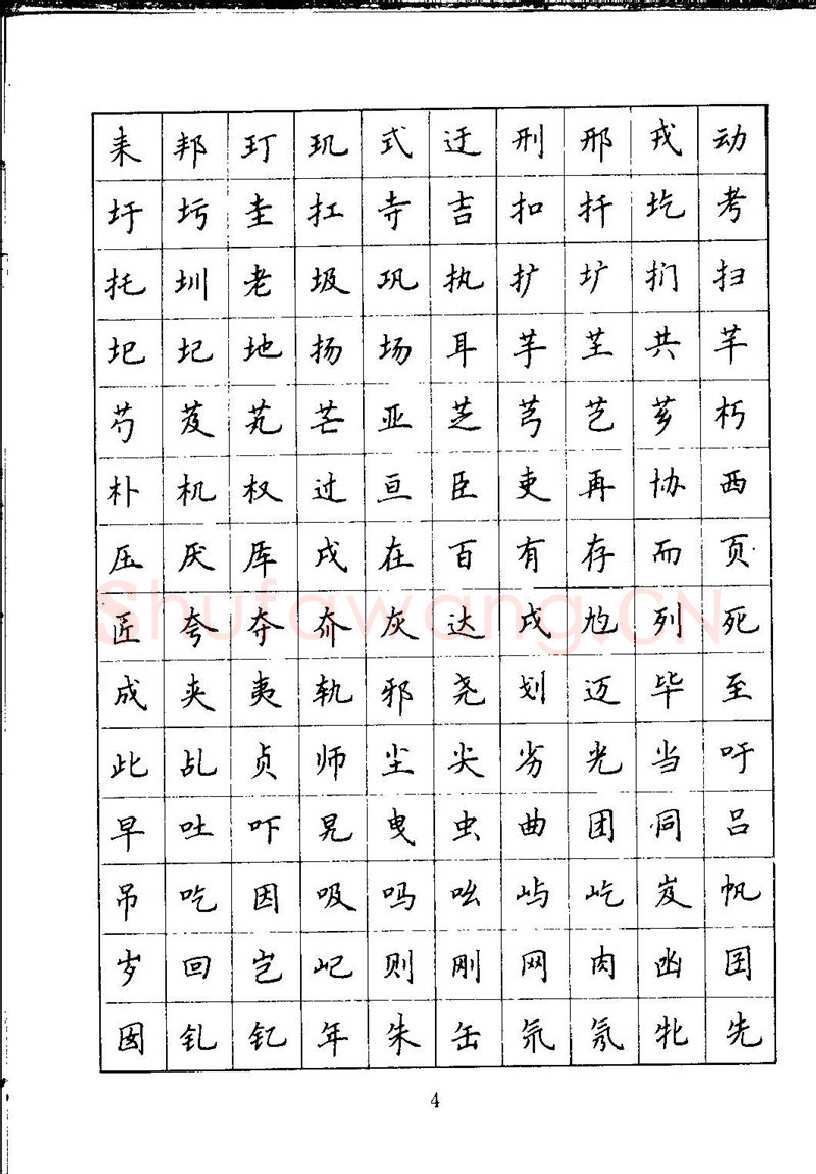 耒 邦 玎 玑 式 迂 刑 邢 戎 动
圩 圬 圭 扛 寺 吉 扣 扦 圪 考
托 圳 老 圾 巩 执 扩 圹 扪 扫
圯 圮 地 扬 场 耳 芋 芏 共 芊
芍 芨 芄 芒 亚 芝 芎 艺 芗 朽
朴 机 权 过 亘 臣 吏 再 协 西
压 厌 厍 戌 在 百 有 存 而 页
匠 夸 夺 夼 灰 达 戍 尥 列 死
成 夹 夷 轨 邪 尧 划 迈 毕 至
此 乩 贞 师 尘 尖 劣 光 当 吁
早 吐 吓 晃 曳 虫 曲 团 同 吕
吊 吃 因 吸 吗 吆 屿 屹 岌 帆
岁 回 岂 屺 则 刚 网 肉 凼 囝
囡 钆 钇 年 朱 缶 氘 氖 牝 先
Shufawang.CN
4